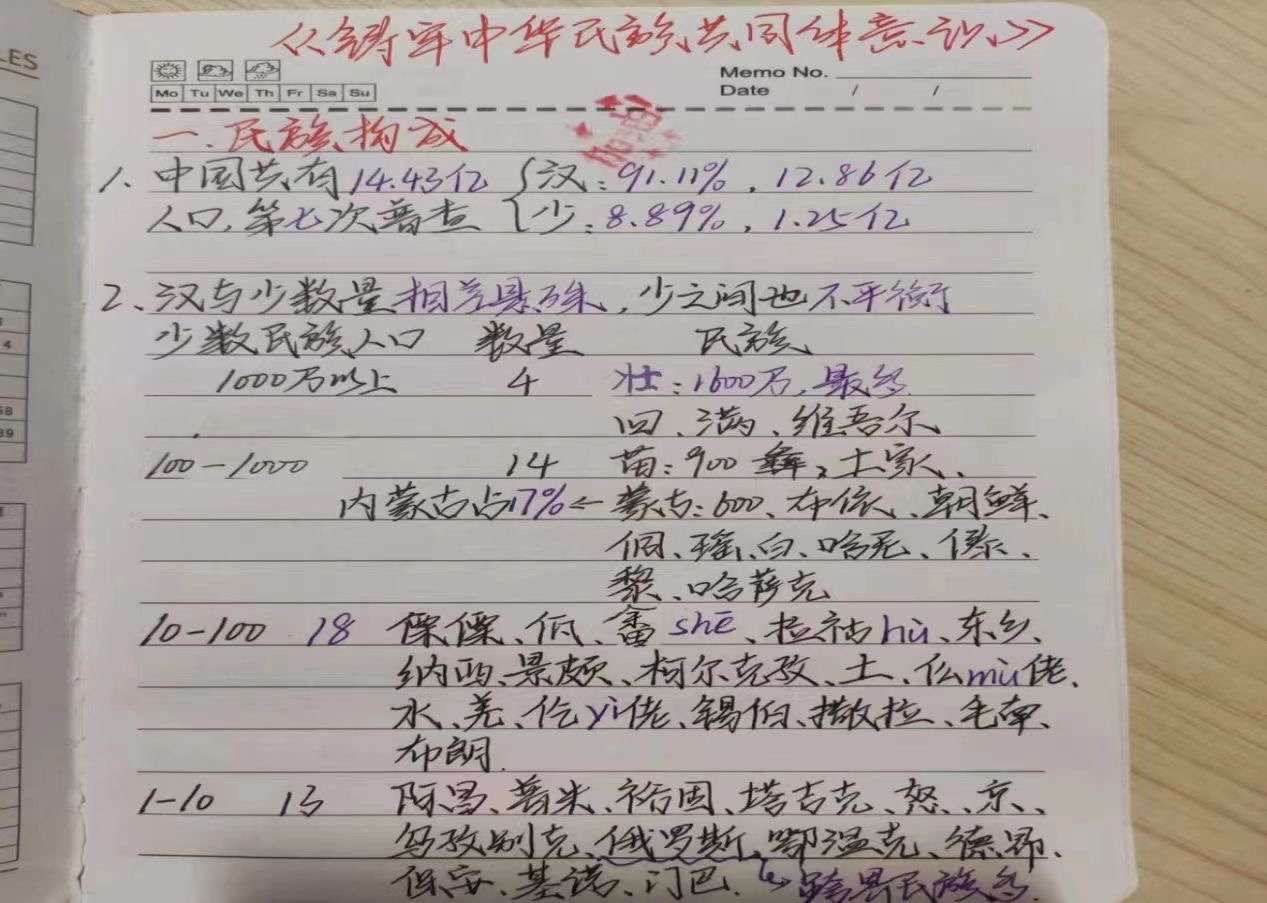 LES
《铸牢中华民族共同体意识》
Memo No.
Mo Tu We Th Fr Sa Su
Date / /
一.民族构成
1、中国共有14.43亿 {汉:91.11%,12.86亿
人口,第七次普查 少:8.89%,1.25亿
2、汉与少数量相差悬殊,少之间也不平衡
少数民族人口 数量 民族
1000万以上 4 壮:1600万,最多
回、满、维吾尔
100-1000 14 苗:900 彝、土家、
内蒙古占17%←蒙古:600、布依、朝鲜、
侗、瑶、白、哈尼、傣、
黎、哈萨克
10-100 18 傈僳、佤、畲shē、拉祜hù、东乡、
纳西、景颇、柯尔克孜、土、仫mù佬、
水、羌、仡yì佬、锡伯、撒拉、毛南、
布朗.
1-10 13 阿昌、普米、裕固、塔吉克、怒、京、
乌孜别克、俄罗斯、鄂温克、德昂、
保安、基诺、门巴. 跨界民族多